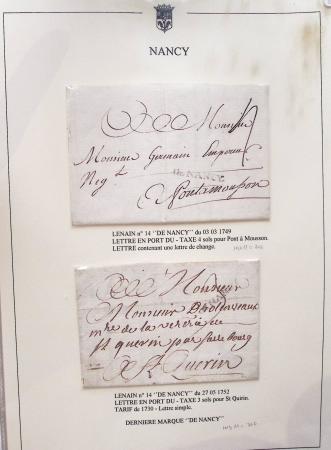 NANCY
A Monsieur
Monsieur Germain
Neg.t
DE NANCY
A Pontamousson
LENAIN n° 14 "DE NANCY" du 03 03 1749
LETTRE EN PORT DU - TAXE 4 sols pour Pont à Mousson.
LETTRE contenant une lettre de change.
A Monsieur
Monsieur
m.re de la verrerie de
St querin par sarebourg
A St Querin
LENAIN n° 14 "DE NANCY" du 27 05 1752
LETTRE EN PORT DU - TAXE 3 sols pour St Quirin.
TARIF de 1730 - Lettre simple.
DERNIERE MARQUE "DE NANCY"